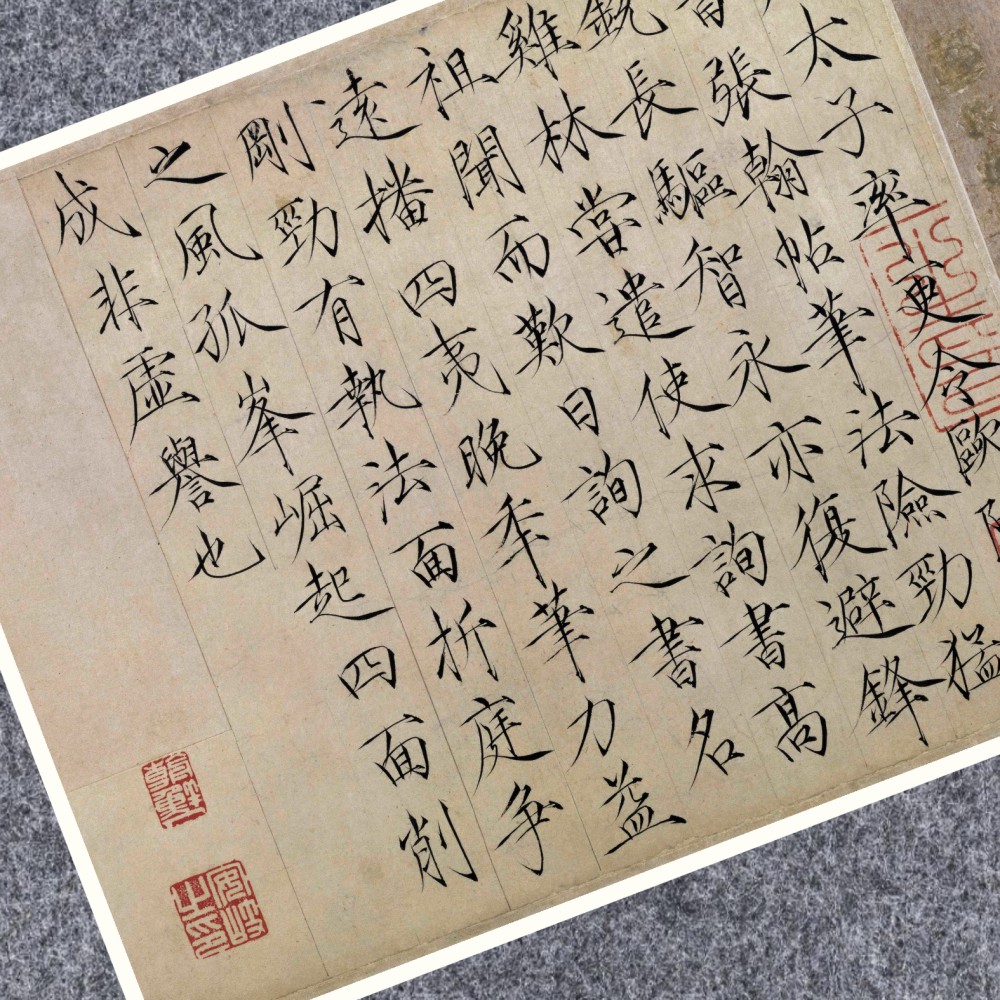 太子率更令歐
張翰帖筆法險勁猛
銳長驅智永亦復避鋒
雞林嘗遣使求詢書髙
祖聞而歎曰詢之書名
遠播四夷晚秊筆力益
剛勁有執法面折庭争
之風孤峯崛起四面削
成非虛譽也